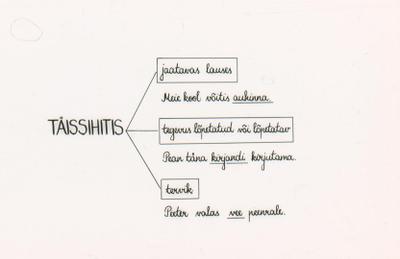 jaatavas lauses
Meie kool võitis auhinna.
TÄISSIHITIS
tegevus lõpetatud või lõpetatav
Pean täna kirjandi kirjutama.
tervik
Peeter valas vee peenrale.